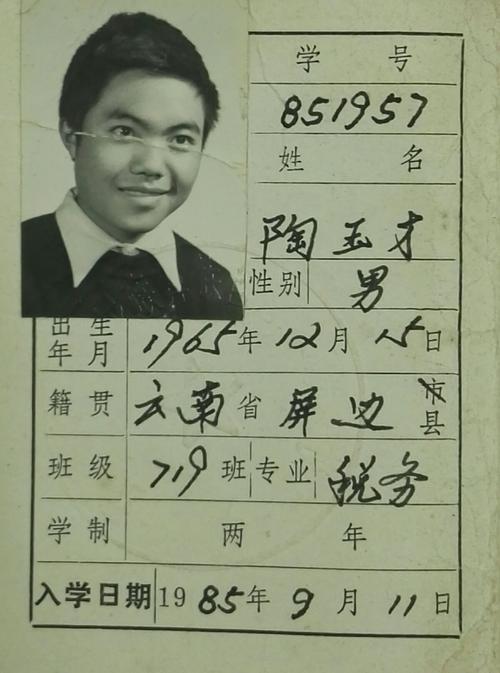 学 号
851957
姓 名
陶玉才
性别 男
出生年月 1965年12月15日
籍贯 云南省屏边市县
班级 719班 专业 税务
学制 两年
入学日期 1985年9月11日